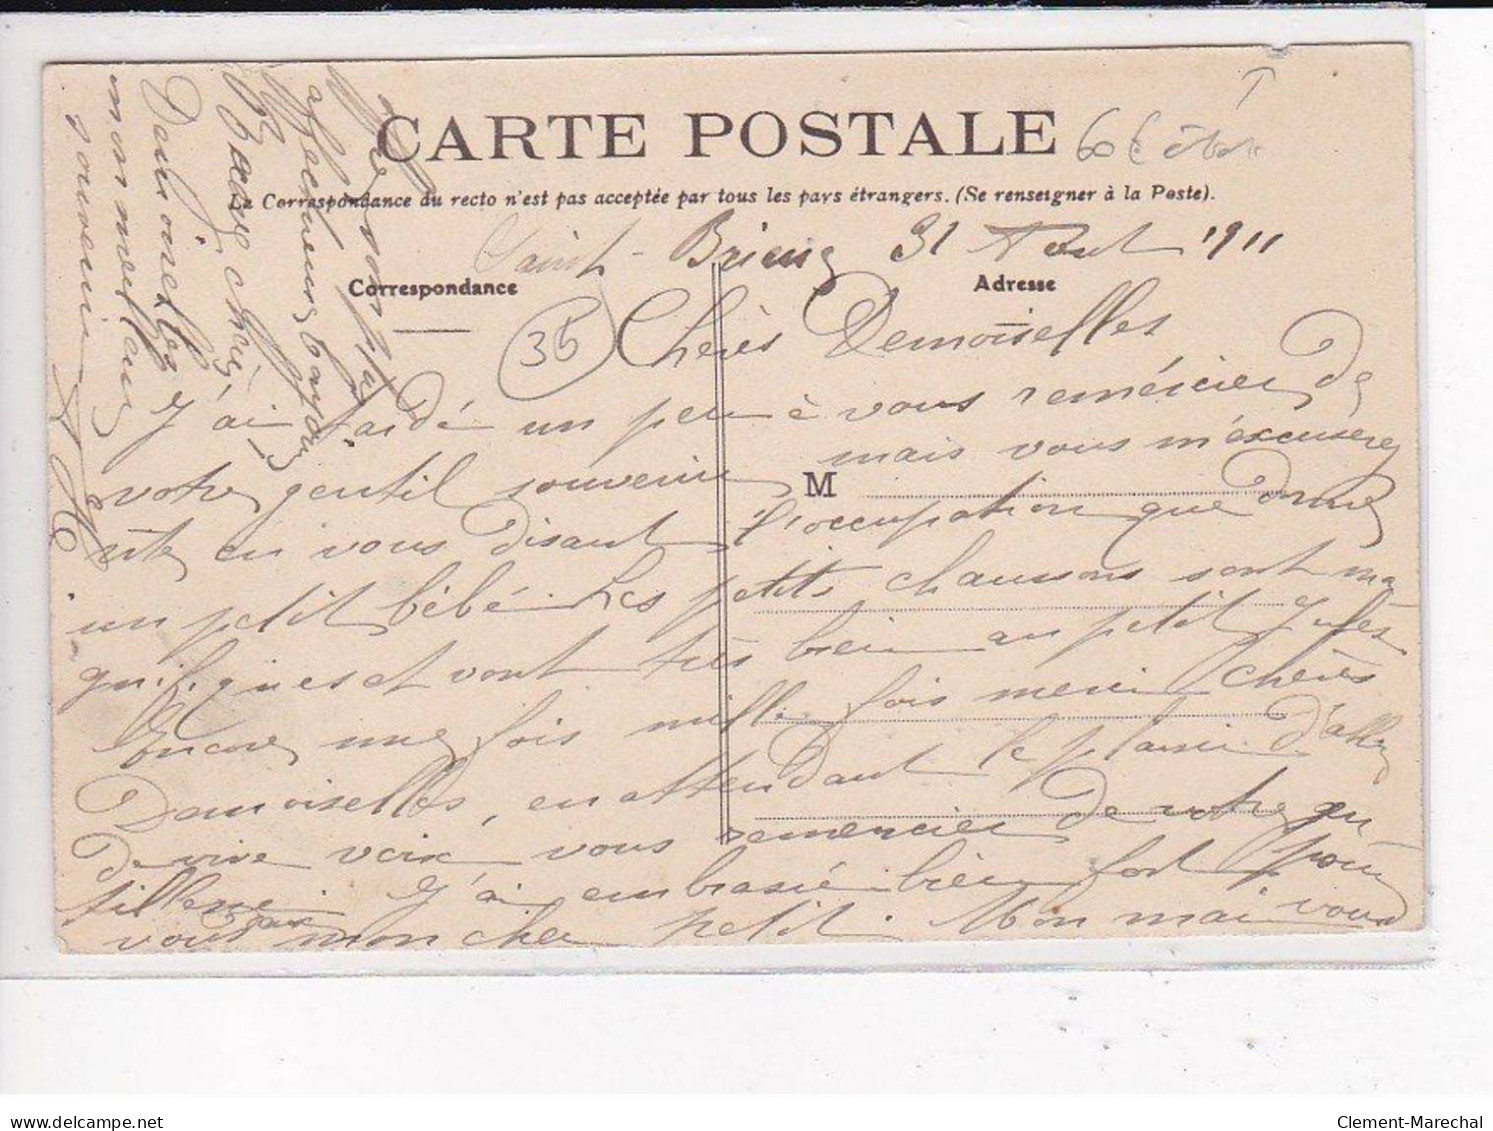 CARTE POSTALE
60 €
La Correspondance du recto n'est pas acceptée par tous les pays étrangers. (Se renseigner à la Poste).
Saint-Brieuc 31 Aout 1911
Correspondance
Adresse
35
Chères Demoiselles
J'ai tardé un peu à vous remércier de
votre gentil souvenir mais vous m'éxcuserez
M
vite en vous disant l'occupation que donne
un petit bébé. Les petits chaussons sont ma
gnifiques et vont très bien au petit Jules
Encore une fois mille fois merci chères
Demoiselles, en attendant le plaisir d'aller
de vive voix vous remercier de votre gen
tillesse J'ai embrassé bien fort pour
vous deux mon cher petit. Mon mari vous
affectueux
Beaux chers
Demoiselles
mon meilleur
souvenir
Clement-Marechal
www.delcampe.net